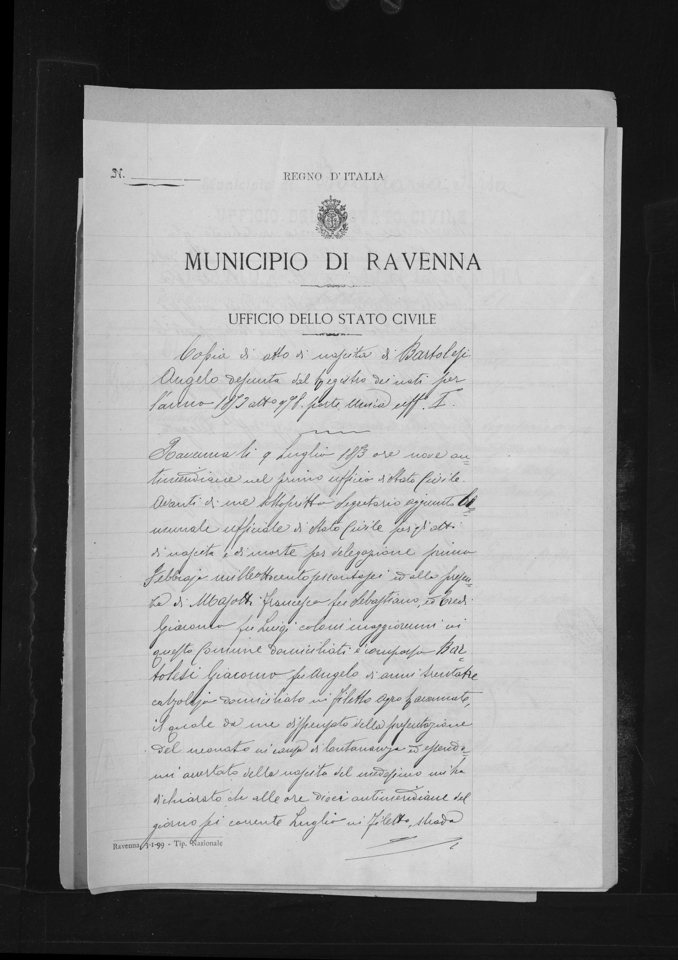 N.
REGNO D'ITALIA
MUNICIPIO DI RAVENNA
UFFICIO DELLO STATO CIVILE
Copia di atto di nascita di Bartolesi
Angelo desunta dal Registro dei nati per
l'anno 1873 atto 978. parte Unica uff. I.
Ravenna li 9 Luglio 1873 ore nove an-
timeridiane nel primo ufficio di Stato Civile.
Avanti di me sottoscritto Segretario aggiunto Co-
munale ufficiale di Stato Civile per gli atti
di nascita e di morte per delegazione primo
Febbrajo milleottocentosessantasei ed alla presen-
za di Masotti Francesco fu Sebastiano, e
Giacomo fu Luigi coloni maggiorenni in
questo Comune domiciliati è comparso Bar-
tolesi Giacomo fu Angelo di anni trentatre
calzolajo domiciliato in Filetto agro Ravennate,
il quale da me dispensato della presentazione
del neonato in causa di lontananza ed essendo-
mi accertato della nascita del medesimo mi ha
dichiarato che alle ore dieci antimeridiane del
giorno sei corrente Luglio in Filetto, strada
Ravenna, 3-1-99 - Tip. Nazionale